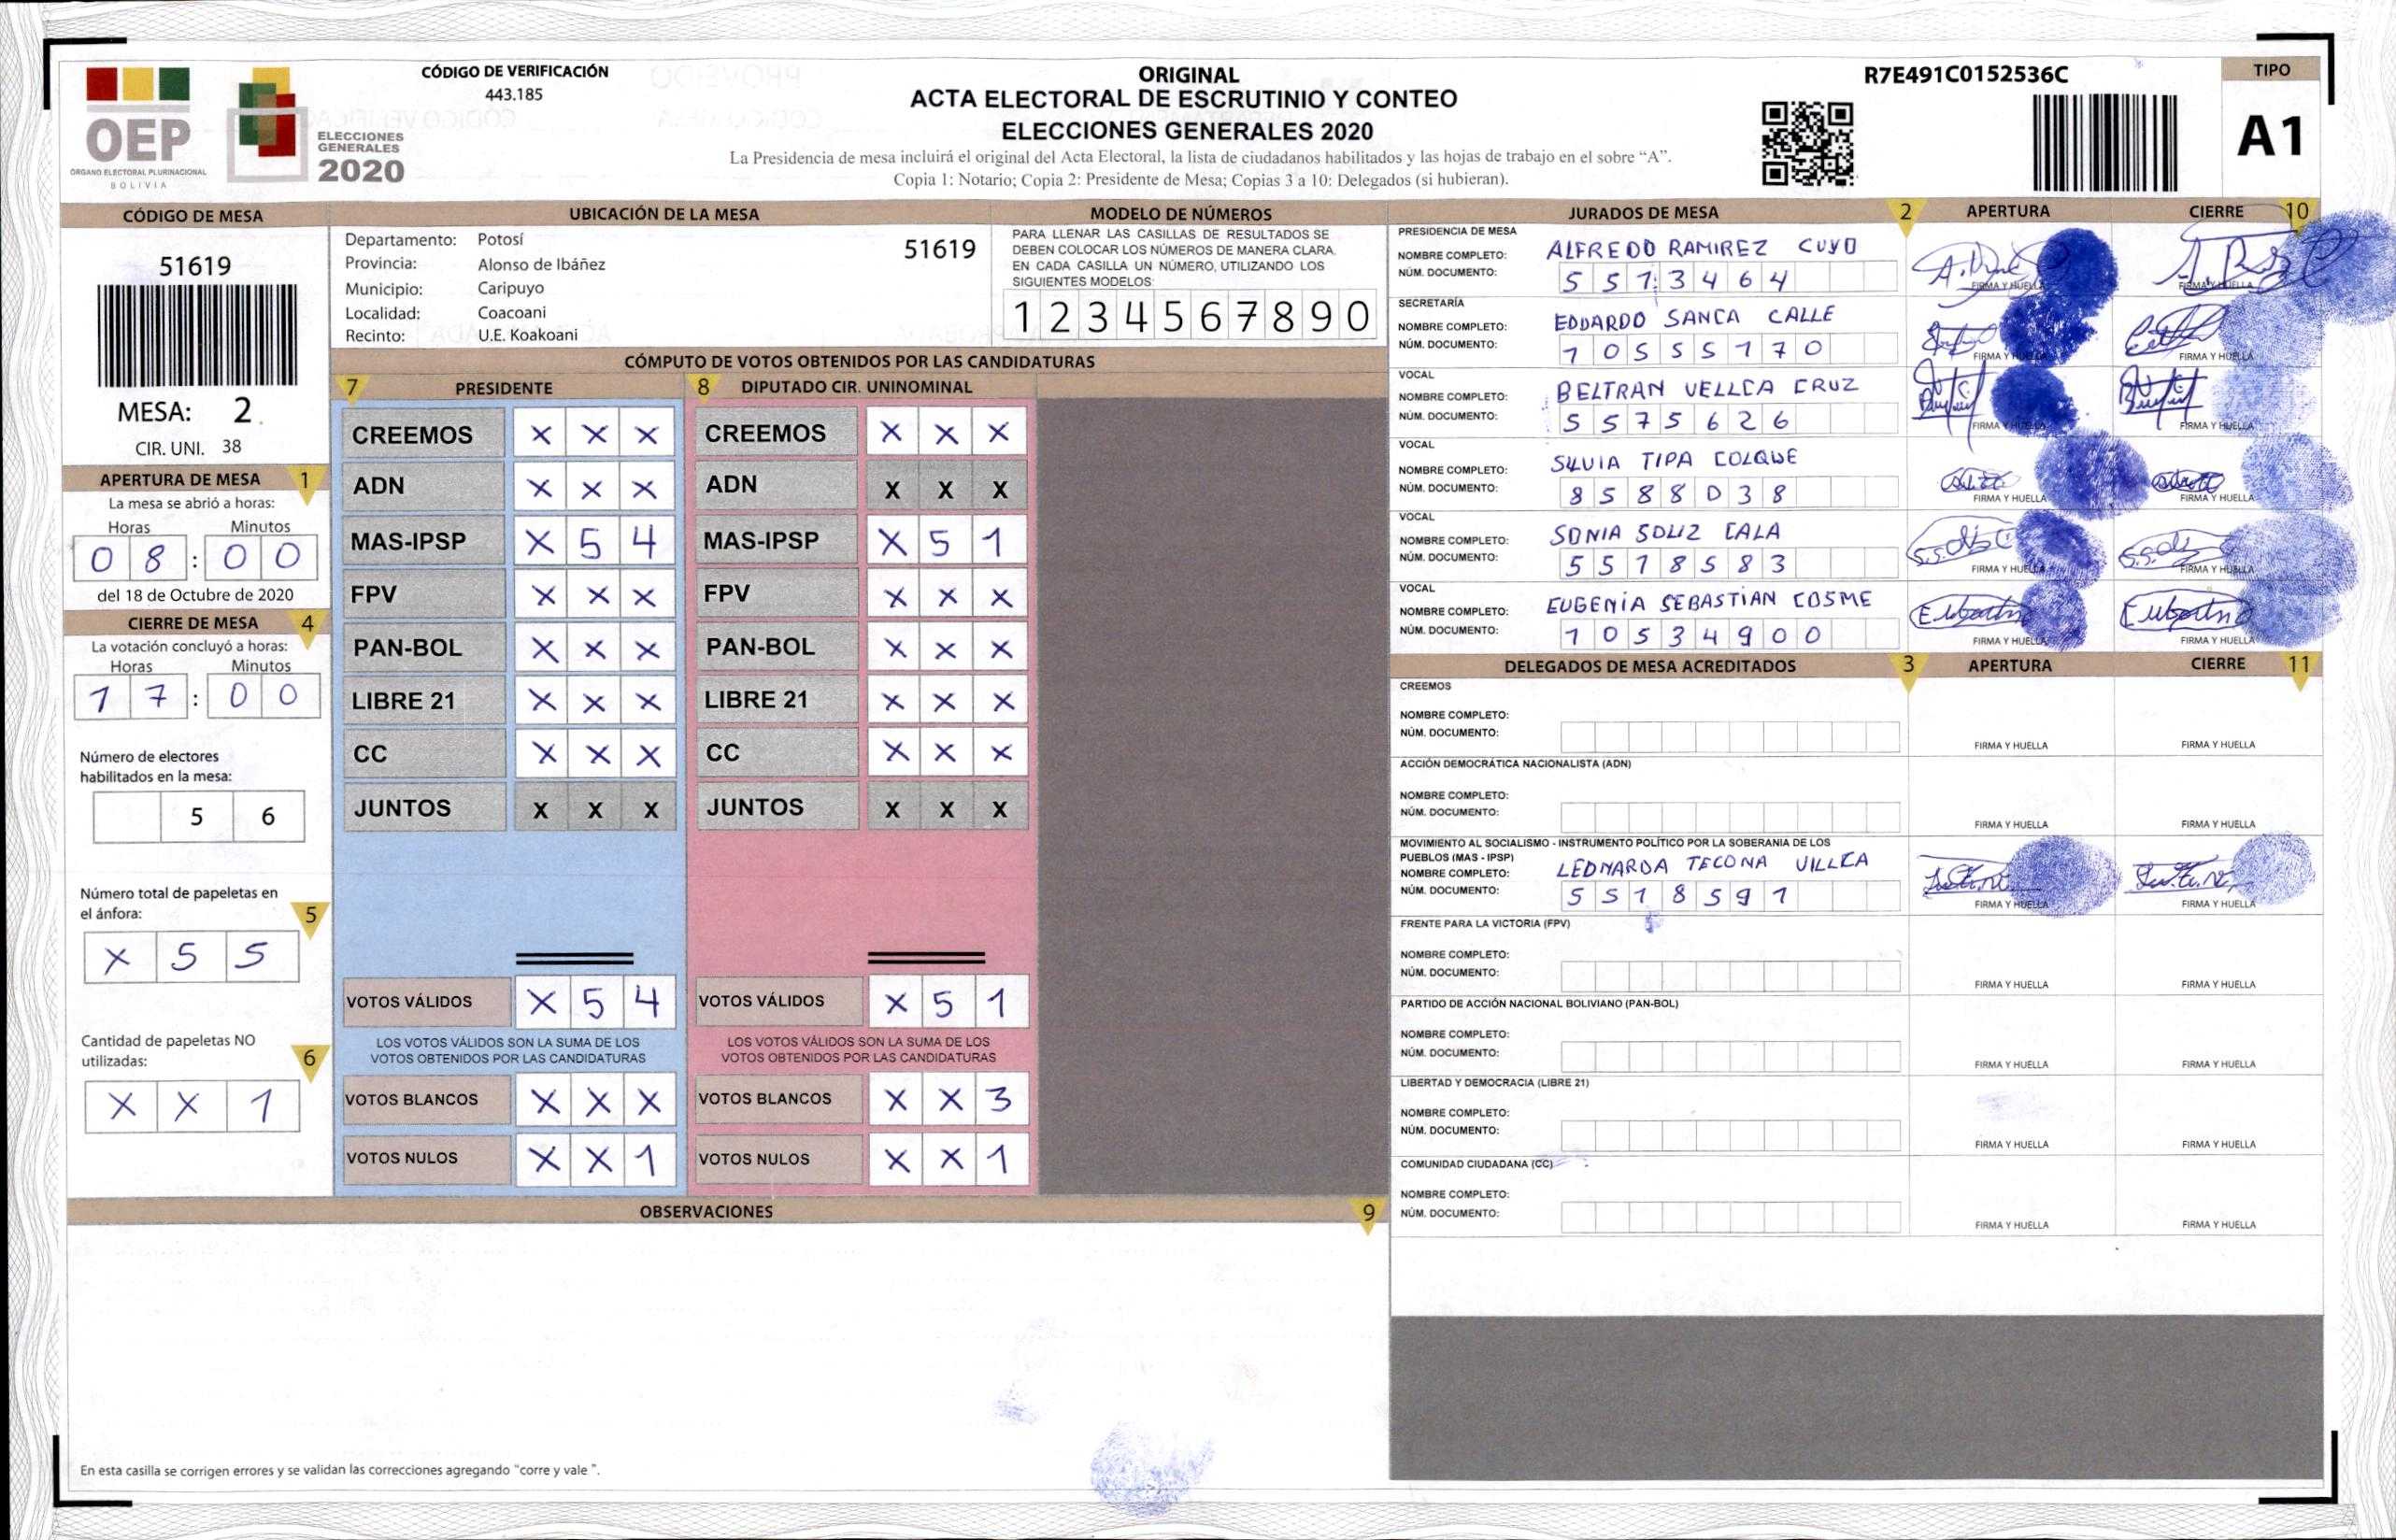 OEP
ÓRGANO ELECTORAL PLURINACIONAL
BOLIVIA
ELECCIONES
GENERALES
2020
CÓDIGO DE VERIFICACIÓN
443.185
ORIGINAL
ACTA ELECTORAL DE ESCRUTINIO Y CONTEO
ELECCIONES GENERALES 2020
La Presidencia de mesa incluirá el original del Acta Electoral, la lista de ciudadanos habilitados y las hojas de trabajo en el sobre “A”.
Copia 1: Notario; Copia 2: Presidente de Mesa; Copias 3 a 10: Delegados (si hubieran).
R7E491C0152536C
TIPO
A1
CÓDIGO DE MESA
51619
MESA: 2
CIR. UNI. 38
APERTURA DE MESA 1
La mesa se abrió a horas:
Horas Minutos
0 8 : 0 0
del 18 de Octubre de 2020
CIERRE DE MESA 4
La votación concluyó a horas:
Horas Minutos
1 7 : 0 0
Número de electores
habilitados en la mesa:
5 6
Número total de papeletas en
el ánfora: 5
X 5 5
Cantidad de papeletas NO
utilizadas: 6
X X 1
UBICACIÓN DE LA MESA
Departamento: Potosí 51619
Provincia: Alonso de Ibáñez
Municipio: Caripuyo
Localidad: Coacoani
Recinto: U.E. Koakoani
MODELO DE NÚMEROS
PARA LLENAR LAS CASILLAS DE RESULTADOS SE
DEBEN COLOCAR LOS NÚMEROS DE MANERA CLARA.
EN CADA CASILLA UN NÚMERO, UTILIZANDO LOS
SIGUIENTES MODELOS:
1 2 3 4 5 6 7 8 9 0
CÓMPUTO DE VOTOS OBTENIDOS POR LAS CANDIDATURAS
7 PRESIDENTE
CREEMOS X X X
ADN X X X
MAS-IPSP X 5 4
FPV X X X
PAN-BOL X X X
LIBRE 21 X X X
CC X X X
JUNTOS X X X
VOTOS VÁLIDOS X 5 4
LOS VOTOS VÁLIDOS SON LA SUMA DE LOS
VOTOS OBTENIDOS POR LAS CANDIDATURAS
VOTOS BLANCOS X X X
VOTOS NULOS X X 1
8 DIPUTADO CIR. UNINOMINAL
CREEMOS X X X
ADN X X X
MAS-IPSP X 5 1
FPV X X X
PAN-BOL X X X
LIBRE 21 X X X
CC X X X
JUNTOS X X X
VOTOS VÁLIDOS X 5 1
LOS VOTOS VÁLIDOS SON LA SUMA DE LOS
VOTOS OBTENIDOS POR LAS CANDIDATURAS
VOTOS BLANCOS X X 3
VOTOS NULOS X X 1
OBSERVACIONES 9
En esta casilla se corrigen errores y se validan las correcciones agregando "corre y vale ".
JURADOS DE MESA 2 APERTURA CIERRE 10
PRESIDENCIA DE MESA
NOMBRE COMPLETO: ALFREDO RAMIREZ CUYO
NÚM. DOCUMENTO: 5 5 7 3 4 6 4
FIRMA Y HUELLA FIRMA Y HUELLA
SECRETARÍA
NOMBRE COMPLETO: EDUARDO SANCA CALLE
NÚM. DOCUMENTO: 1 0 5 5 5 1 7 0
FIRMA Y HUELLA FIRMA Y HUELLA
VOCAL
NOMBRE COMPLETO: BELTRAN VELLCA CRUZ
NÚM. DOCUMENTO: 5 5 7 5 6 2 6
FIRMA Y HUELLA FIRMA Y HUELLA
VOCAL
NOMBRE COMPLETO: SILVIA TIPA COLQUE
NÚM. DOCUMENTO: 8 5 8 8 0 3 8
FIRMA Y HUELLA FIRMA Y HUELLA
VOCAL
NOMBRE COMPLETO: SONIA SOLIZ CALA
NÚM. DOCUMENTO: 5 5 1 8 5 8 3
FIRMA Y HUELLA FIRMA Y HUELLA
VOCAL
NOMBRE COMPLETO: EUGENIA SEBASTIAN COSME
NÚM. DOCUMENTO: 1 0 5 3 4 9 0 0
FIRMA Y HUELLA FIRMA Y HUELLA
DELEGADOS DE MESA ACREDITADOS 3 APERTURA CIERRE 11
CREEMOS
NOMBRE COMPLETO:
NÚM. DOCUMENTO:
FIRMA Y HUELLA FIRMA Y HUELLA
ACCIÓN DEMOCRÁTICA NACIONALISTA (ADN)
NOMBRE COMPLETO:
NÚM. DOCUMENTO:
FIRMA Y HUELLA FIRMA Y HUELLA
MOVIMIENTO AL SOCIALISMO - INSTRUMENTO POLÍTICO POR LA SOBERANIA DE LOS
PUEBLOS (MAS - IPSP)
NOMBRE COMPLETO: LEONARDA TECONA VILLCA
NÚM. DOCUMENTO: 5 5 1 8 5 9 1
FIRMA Y HUELLA FIRMA Y HUELLA
FRENTE PARA LA VICTORIA (FPV)
NOMBRE COMPLETO:
NÚM. DOCUMENTO:
FIRMA Y HUELLA FIRMA Y HUELLA
PARTIDO DE ACCIÓN NACIONAL BOLIVIANO (PAN-BOL)
NOMBRE COMPLETO:
NÚM. DOCUMENTO:
FIRMA Y HUELLA FIRMA Y HUELLA
LIBERTAD Y DEMOCRACIA (LIBRE 21)
NOMBRE COMPLETO:
NÚM. DOCUMENTO:
FIRMA Y HUELLA FIRMA Y HUELLA
COMUNIDAD CIUDADANA (CC)
NOMBRE COMPLETO:
NÚM. DOCUMENTO:
FIRMA Y HUELLA FIRMA Y HUELLA